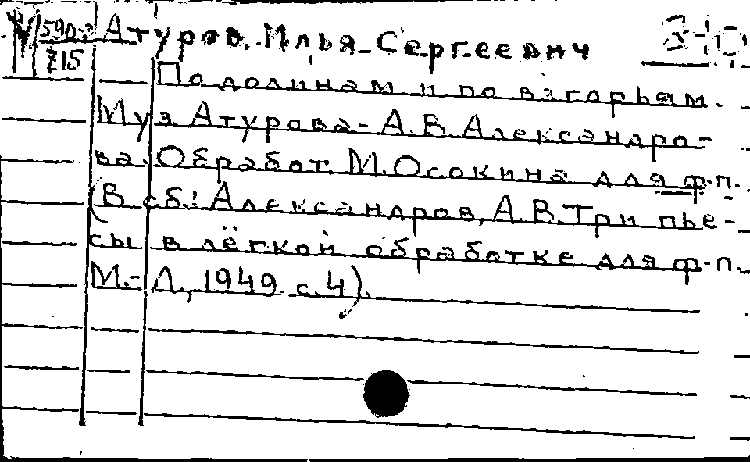 Атуров, Илья Сергеевич
715
По долинам и по взгорьям.
Муз Атурова - А.В. Александро-
ва. Обработ. М. Осокина для ф.п.
(В сб.: Александров, А.В. Три пье-
сы в лёгкой обработке для ф-п.
М.-Л., 1949 с. 4).